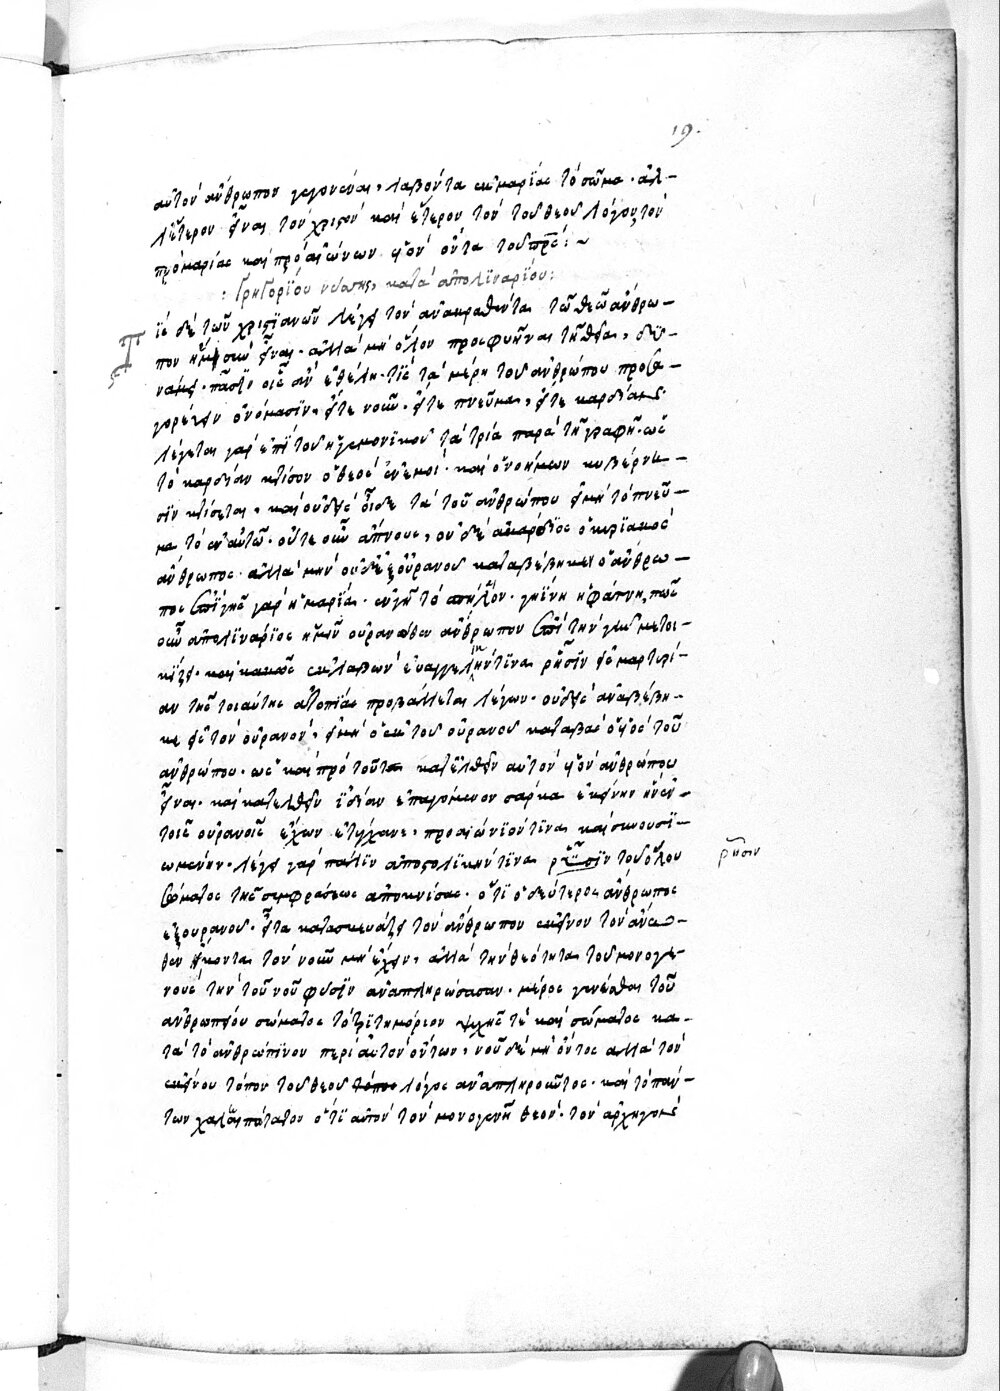 19.
αὐτὸν ἄνθρωπον γεγονέναι, λαβόντα ἐκ μαρίας τὸ σῶμα. ἀλ-
λ' ἕτερον εἶναι τὸν χριστὸν καὶ ἕτερον τὸν τοῦ θεοῦ λόγον τὸν
πρὸ μαρίας καὶ πρὸ αἰώνων υἱὸν ὄντα τοῦ πρς: ~
: Γρηγορίου νύσσης, κατὰ ἀπολιναρίου:
Τίς δὲ τῶν χριστιανῶν λέγει τὸν ἀνακραθέντα τῶ θεῶ ἄνθρω-
πον ἥμισυν εἶναι. ἀλλὰ μὴ ὅλον προσφυῆναι τῆ θεία, δυ-
νάμει. πᾶσιν οἷς ἂν ἐθέλη τις τὰ μέρη τοῦ ἀνθρώπου προσα-
γορεύειν ὀνόμασιν, εἴτε νοῦν. εἴτε πνεῦμα, εἴτε καρδίαν
λέγεται γὰρ ἐπὶ τοῦ ἡγεμονικοῦ τὰ τρία παρὰ τῆ γραφῆ. ὡς
τὸ καρδίαν κτίσον ὁ θεὸς ἐν ἐμοί. καὶ ὁ νοήμων κυβέρνη-
σιν κτήσεται, καὶ οὐδεὶς οἶδε τὰ τοῦ ἀνθρώπου εἰ μὴ τὸ πνεῦ-
μα τὸ ἐν αὐτῶ. οὔτε οὖν ἄπνους, οὐδὲ ἀκάρδιος ὁ κυριακὸς
ἄνθρωπος. ἀλλὰ μὴν οὐδὲ ἐξ οὐρανοῦ καταβέβηκεν ὁ ἄνθρω-
πος ἐπὶ γῆς γὰρ ἡ μαρία. ἐν γῆ τὸ σπήλαιον. γηΐνη ἡ φάτνη, πῶς
οὖν ἀπολινάριος ἡμῖν οὐρανόθεν ἄνθρωπον ἐπὶ τὴν γῆν μετοι-
κίζει. καὶ κακῶς ἐκλαβὼν εὐαγγελικήν τινα ῥῆσιν εἰς μαρτυρί-
αν τῆς τοιαύτης ἀτοπίας προβάλλεται λέγων. οὐδεὶς ἀναβέβη-
κε εἰς τὸν οὐρανὸν, εἰ μὴ ὁ ἐκ τοῦ οὐρανοῦ καταβὰς ὁ υἱὸς τοῦ
ἀνθρώπου. ὡς καὶ πρὸ τοῦτο κατελθεῖν αὐτὸν υἱὸν ἀνθρώπου
εἶναι. καὶ κατελθεῖν ἰδίαν ἐπαγόμενον σάρκα ἐκείνην ἣν ἐν
τοῖς οὐρανοῖς ἔχων ἐτύγχανε, προαιώνιόν τινα καὶ συνουσι-
ωμένην. λέγει γὰρ πάλιν ἀποστολικήν τινα ῥῆσιν τοῦ ὅλου
σώματος τῆς συμφράσεως ἀποκνίσας. ὅτι ὁ δεύτερος ἄνθρωπος
ἐξ οὐρανοῦ. εἶτα κατασκευάζει τὸν ἄνθρωπον ἐκεῖνον τὸν ἄνω-
θεν ἥκοντα τὸν νοῦν μὴ ἔχειν, ἀλλὰ τὴν θεότητα τοῦ μονογε-
νοῦς τὴν τοῦ νοῦ φύσιν ἀναπληρώσασαν. μέρος γενέσθαι τοῦ
ἀνθρωπείου σώματος τὸ τριτημόριον ψυχῆς τε καὶ σώματος κα-
τὰ τὸ ἀνθρώπινον περὶ αὐτὸν ὄντων, νοῦ δὲ μὴ ὄντος ἀλλὰ τὸν
ἐκείνου τόπον τοῦ θεοῦ λόγος ἀναπληροῦντος. καὶ τὸ πάν-
των χαλεπώτατον ὅτι αὐτὸν τὸν μονογενῆ θεὸν. τὸν ἀρχηγὸν
ῥῆσιν